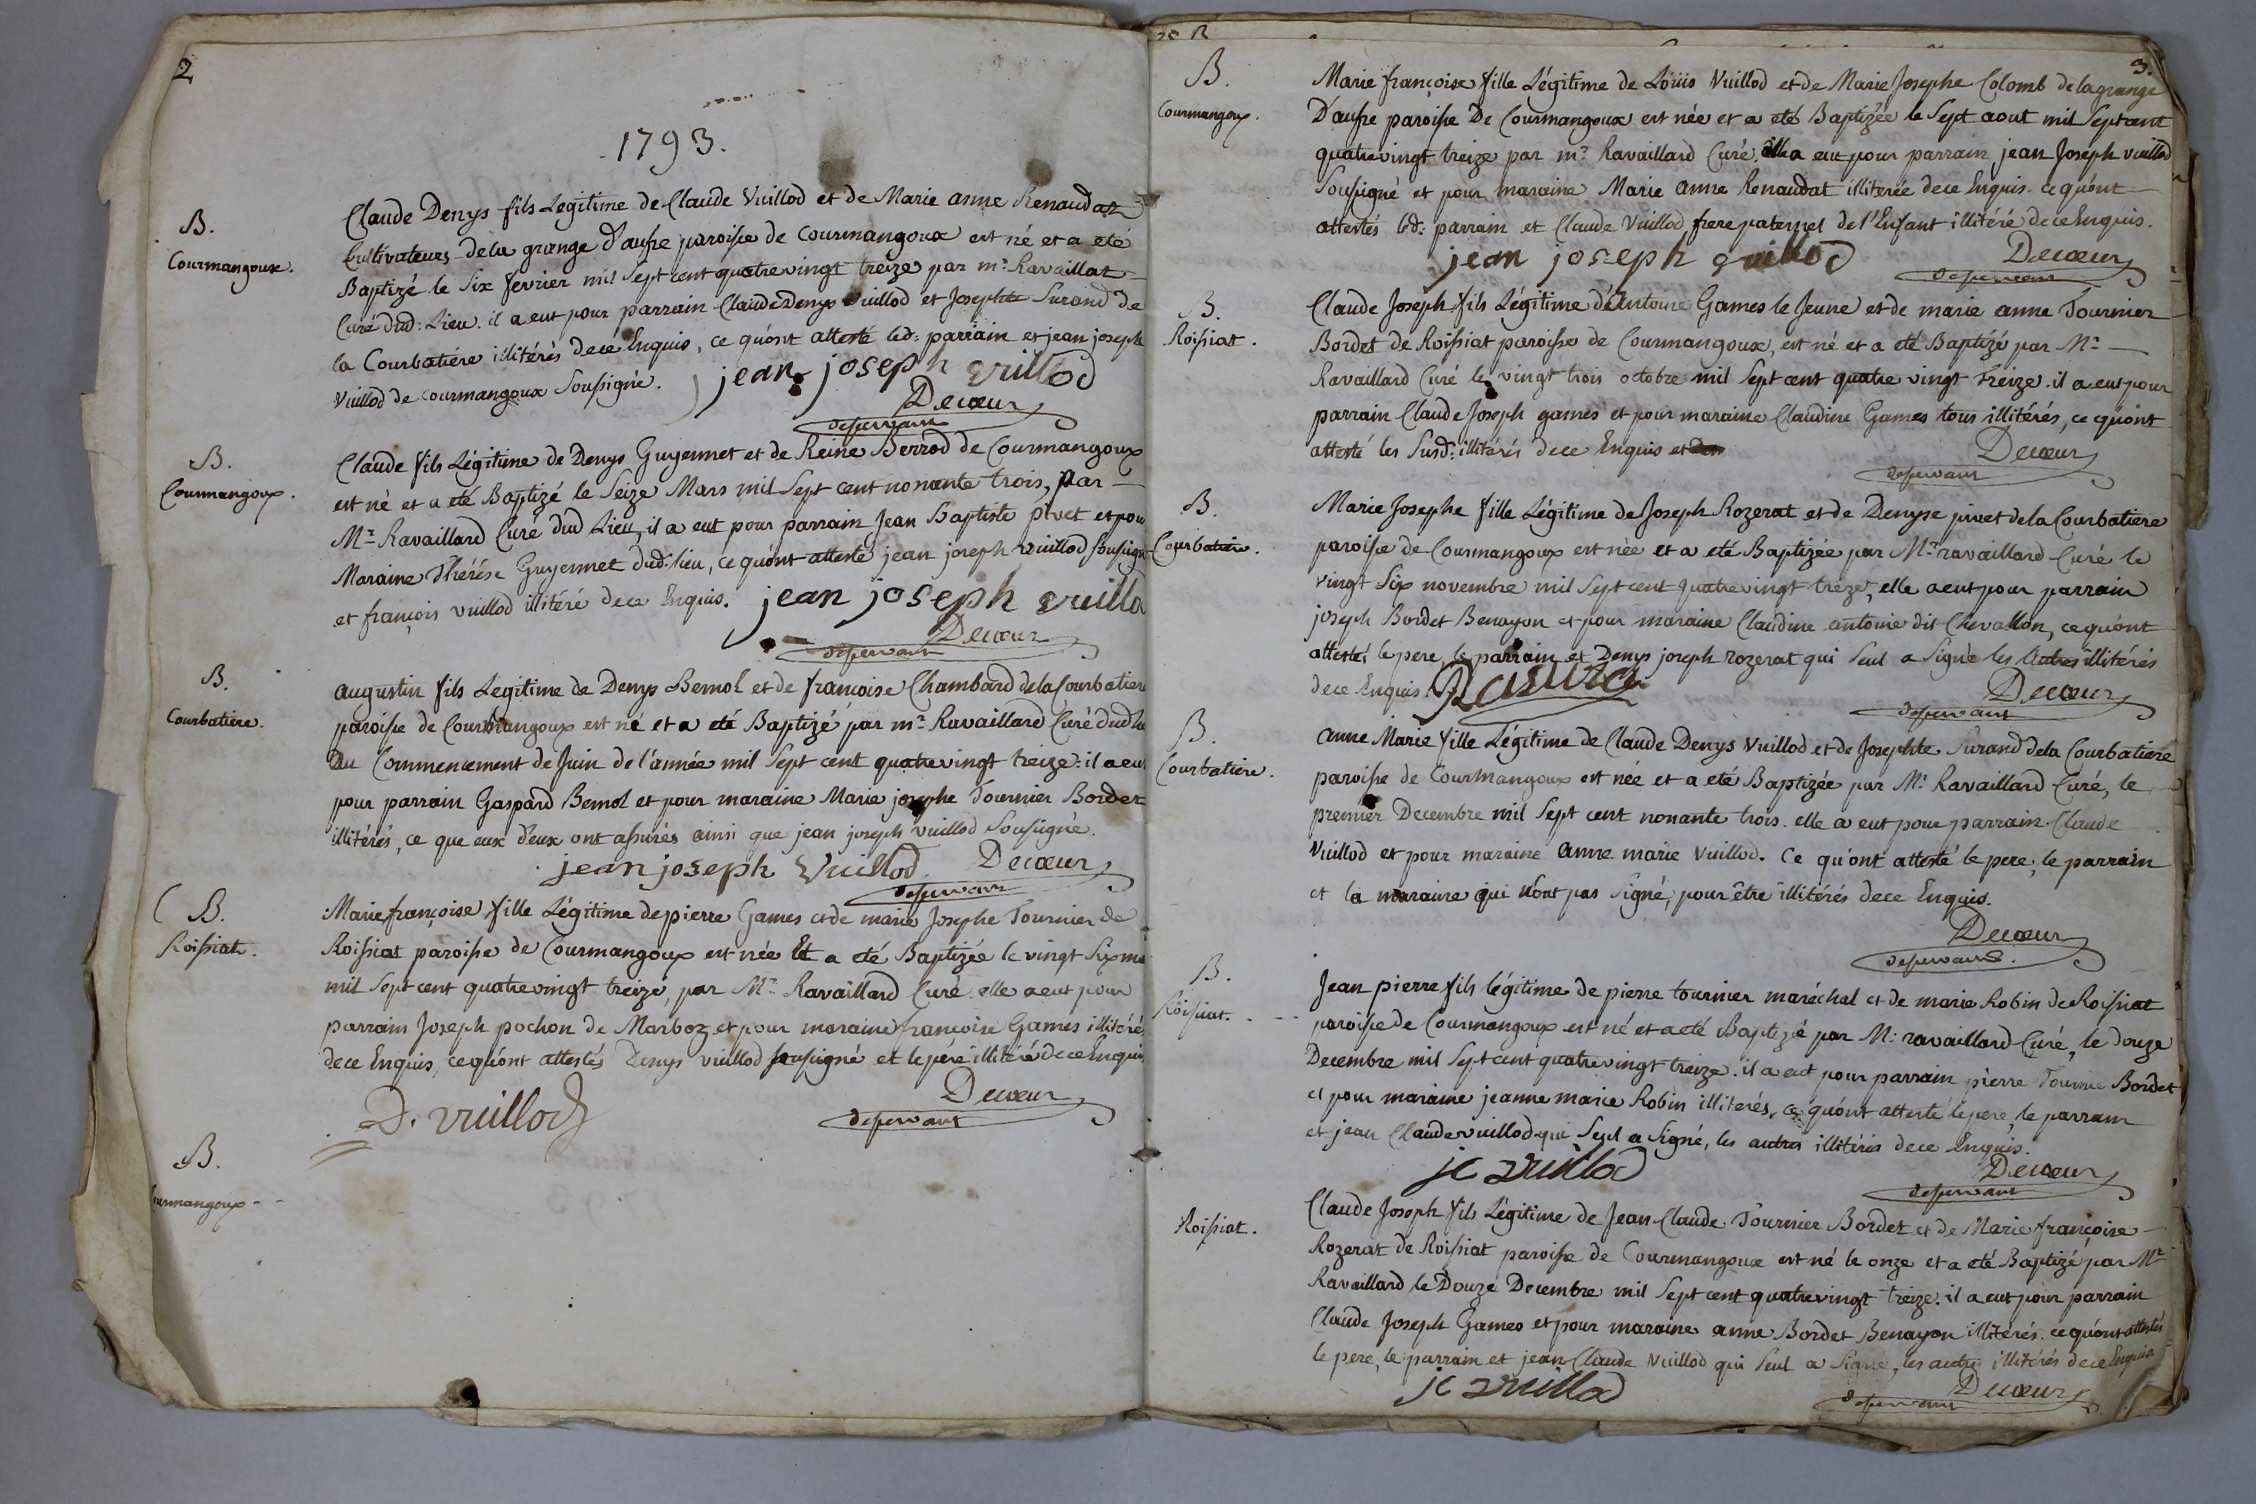 2
1793.
B.
Courmangoux.
Claude Denys fils Legitime de Claude Vuillod et de Marie anne Renaudat
Cultivateurs de la grange d'aufre paroisse de Courmangoux est né et a eté
Baptizé le Six fevrier mil Sept cent quatrevingt treize par mr. Ravaillat
Curé dud: Lieu. il a eut pour parrain Claude Denys Vuillod et Josephte Surand de
la Courbatiére illitérés de ce Enquis, ce qu'ont attesté led: parrain et jean joseph
Vuillod de Courmangoux Soussigné. jean joseph vuillod
Decœur
desservant
B.
Courmangoux.
Claude fils Légitime de Denys Guyennet et de Reine Berrod de Courmangoux
est né et a eté Baptizé le Seize Mars mil Sept cent nonante trois, par
Mr. Ravaillard Curé dud Lieu, il a eut pour parrain Jean Baptiste pivet et pour
Maraine Thérése Guyennet dud: lieu, ce qu'ont attesté jean joseph vuillod soussigné
et françois vuillod illitéré de ce Enquis. jean joseph vuillo
Decœur
desservant
B.
Courbatiere.
augustin fils Légitime de Denys Bemol et de françoise Chambard de la Courbatiere
paroisse de Courmangoux est né et a eté Baptizé par mr. Ravaillard Curé dud Lieu
Du Commencement de Juin de l'année mil Sept cent quatrevingt treize: il a eut
pour parrain Gaspard Bemol et pour maraine Marie josephe Tournier Bordet
illitérés, ce que eux deux ont assurés ainsi que jean joseph vuillod Soussigné.
jean joseph Vuillod. Decœur
desservant
B.
Roissiat.
Marie françoise fille Légitime de pierre Games et de marie Josephe Tournier de
Roissiat paroisse de Courmangoux est née Et a eté Baptizée le vingt Six mai
mil Sept cent quatrevingt treize, par Mr. Ravaillard Curé. elle a eut pour
parrain Joseph pochon de Marboz et pour maraine françoise Games illitérés
de ce Enquis, ce qu'ont attestés Denys vuillod soussigné et le pére illitéré de ce Enquis
D. vuillod
Decœur
desservant
B.
Courmangoux
3.
B.
Courmangoux.
Marie françoise fille Légitime de Loüis Vuillod et de Marie Josephe Colomb de la grange
D'aufre paroisse De Courmangoux est née et a eté Baptizée le Sept aout mil Sept cent
quatrevingt treize par mr. Ravaillard Curé. elle a eut pour parrain jean Joseph vuillod
Soussigné et pour maraine Marie anne Renaudat illiterée de ce Enquis. ce qu'ont
attestés led: parrain et Claude Vuillod frere paternel de l'Enfant illitéré de ce Enquis.
jean joseph vuillod
Decœur
desservant
B.
Roissiat.
Claude Joseph fils Légitime d'Antoine Games le Jeune et de marie anne Tournier
Bordet de Roissiat paroisse de Courmangoux, est né et a eté Baptizé par Mr.
Ravaillard Curé le vingt trois octobre mil Sept cent quatre vingt treize. il a eut pour
parrain Claude Joseph games et pour maraine Claudine Games tous illitérés, ce qu'ont
attesté les Susd: illitérés de ce Enquis et
Decœur
desservant
B.
Courbatiere.
Marie Josephe fille Légitime de Joseph Rozerat et de Denyse pivet de la Courbatiere
paroisse de Courmangoux est née et a eté Baptizée par Mr. ravaillard Curé le
vingt Six novembre mil Sept cent quatrevingt treze, elle a eut pour parrain
joseph Bordet Benayon et pour maraine Claudine antoine dit Chevallon, ce qu'ont
attestés le pere, le parrain et Denys joseph rozerat qui Seul a Signé les Autres illitérés
de ce Enquis.
Decœur
desservant
B.
Courbatiere.
anne Marie fille Légitime de Claude Denys Vuillod et de Josephte Surand de la Courbatiere
paroisse de Courmangoux est née et a eté Baptizée par Mr. Ravaillard Curé, le
premier Decembre mil Sept cent nonante trois. elle a eut pour parrain Claude
Vuillod et pour maraine anne marie Vuillod. Ce qu'ont attesté le pere, le parrain
et la maraine qui n'ont pas Signé, pour être illitérés de ce Enquis.
Decœur
desservant.
B.
Roissiat.
Jean pierre fils légitime de pierre tournier maréchal et de marie Robin de Roissiat
paroisse de Courmangoux est né et a eté Baptizé par Mr. ravaillard Curé, le douze
Decembre mil Sept cent quatrevingt treize. il a eut pour parrain pierre Tournier Bordet
et pour maraine jeanne marie Robin illiterés, ce qu'ont attesté le pere, le parrain
et jean Claude vuillod qui Seul a Signé, les autres illitérés de ce Enquis.
jc vuillod
Decœur
desservant
Roissiat.
Claude Joseph fils Légitime de Jean Claude Tournier Bordet et de Marie françoise
Rozerat de Roissiat paroisse de Courmangoux est né le onze et a eté Baptizé par Mr
Ravaillard le Douze Decembre mil Sept cent quatrevingt treize. il a eut pour parrain
Claude Joseph Games et pour maraine anne Bordet Benayon illitérés. ce qu'ont attestés
le pere, le parrain et jean Claude Vuillod qui Seul a Signé, les autres illitérés de ce Enquis
jc vuillod
Decœur
desservant